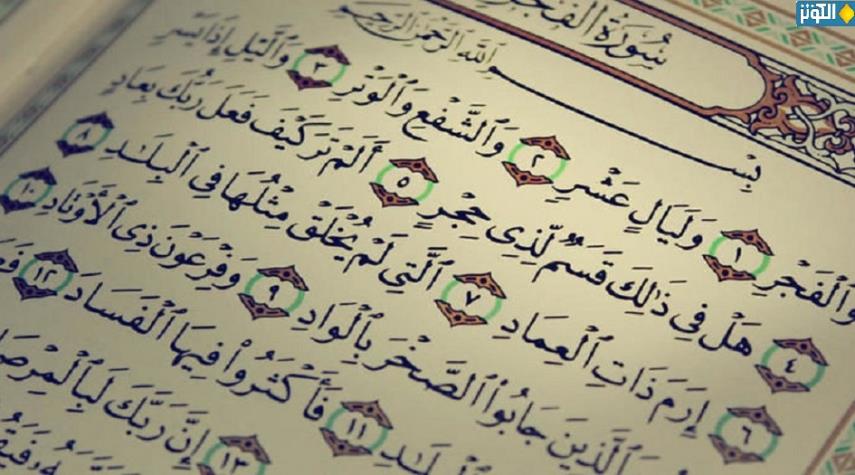 الكوثر
سُورَةُ الفَجْرِ
بِسْمِ اللَّهِ الرَّحْمَٰنِ الرَّحِيمِ
وَٱلْفَجْرِ ١ وَلَيَالٍ عَشْرٍ ٢ وَٱلشَّفْعِ وَٱلْوَتْرِ ٣ وَٱلَّيْلِ إِذَا يَسْرِ
٤ هَلْ فِي ذَٰلِكَ قَسَمٌ لِّذِي حِجْرٍ ٥ أَلَمْ تَرَ كَيْفَ فَعَلَ رَبُّكَ بِعَادٍ
٦ إِرَمَ ذَاتِ ٱلْعِمَادِ ٧ ٱلَّتِي لَمْ يُخْلَقْ مِثْلُهَا فِي ٱلْبِلَٰدِ ٨
ٱلَّذِينَ جَابُوا۟ ٱلصَّخْرَ بِٱلْوَادِ ٩ وَفِرْعَوْنَ ذِي ٱلْأَوْتَادِ ١٠
١١ فَأَكْثَرُوا۟ فِيهَا ٱلْفَسَادَ ١٢
١٣ إِنَّ رَبَّكَ لَبِٱلْمِرْصَا